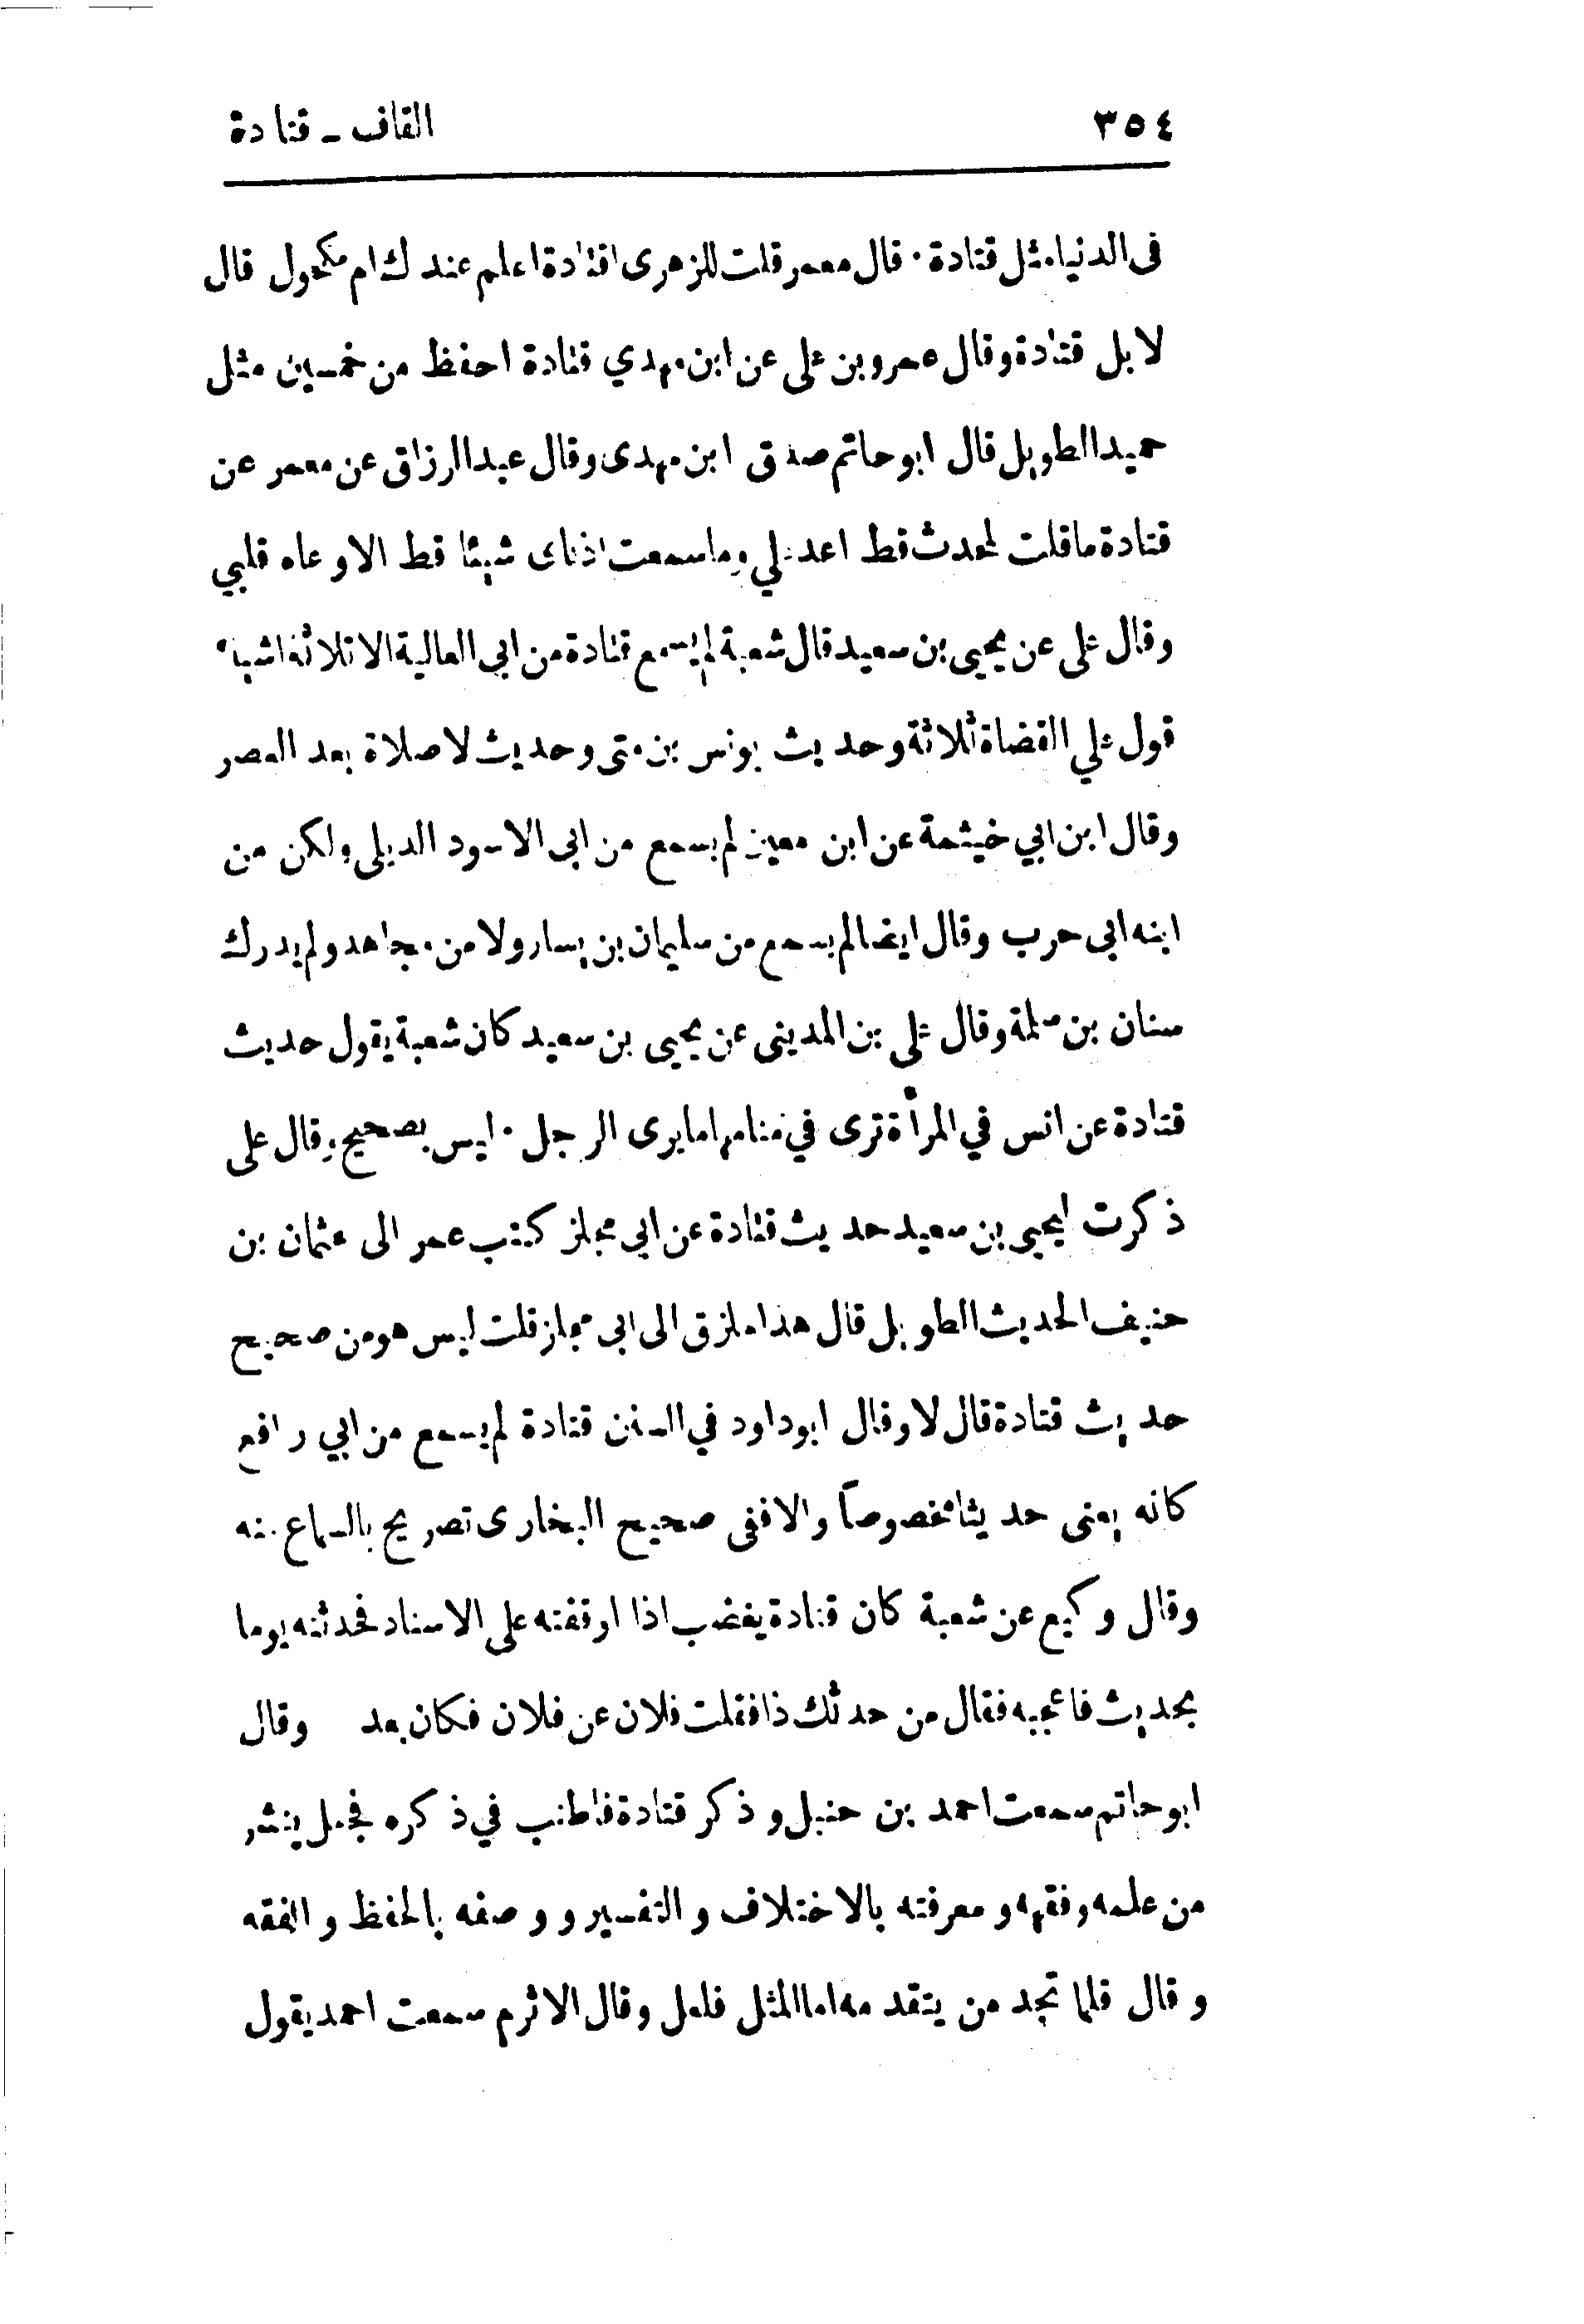 ٣٥٤
القاف ـ قتادة
فى الدنيا مثل قتادة ٠ قال معمر قلت للزهرى اقتادة اعلم عندك ام مكحول قال
لا بل قتادة وقال عمرو بن على عن ابن مهدي قتادة احفظ من خمسين مثل
حميد الطويل قال ابو حاتم صدق ابن مهدى وقال عبد الرزاق عن معمر عن
قتادة ما قلت لمحدث قط اعد لي وما سمعت اذناى شيئا قط الا وعاه قلبي
وقال على عن يحيى بن سعيد قال شعبة لم يسمع قتادة من ابي العالية الا ثلاثة اشياء
قول علي القضاة ثلاثة وحديث يونس بن متى وحديث لا صلاة بعد العصر
وقال ابن ابي خيثمة عن ابن معين لم يسمع من ابى الاسود الديلى ولكن من
ابنه ابى حرب وقال ايضا لم يسمع من سليمان بن يسار ولا من مجاهد ولم يدرك
سنان بن سلمة وقال على بن المدينى عن يحيى بن سعيد كان شعبة يقول حديث
قتادة عن انس في المرأة ترى في منامها ما يرى الرجل ٠ ليس بصحيح وقال على
ذكرت ليحيى بن سعيد حديث قتادة عن ابي مجلز كتب عمر الى عثمان بن
حنيف الحديث الطويل قال هذا ملزق الى ابى مجلز قلت ليس هو من صحيح
حديث قتادة قال لا وقال ابو داود في السنن قتادة لم يسمع من ابي رافع
كانه يعنى حديثا مخصوصاً والا ففى صحيح البخارى تصريح بالسماع منه
وقال وكيع عن شعبة كان قتادة يغضب اذا اوقفته على الاسناد فحدثته يوما
بحديث فاعجبه فقال من حدثك ذا فقلت فلان عن فلان فكان بعد وقال
ابو حاتم سمعت احمد بن حنبل وذكر قتادة فاطنب في ذكره فجعل ينشر
من علمه وفقهه ومعرفته بالاختلاف والتفسير و وصفه بالحفظ و الفقه
وقال قلما تجد من يتقدمه اما المثل فلعل وقال الاثرم سمعت احمد يقول